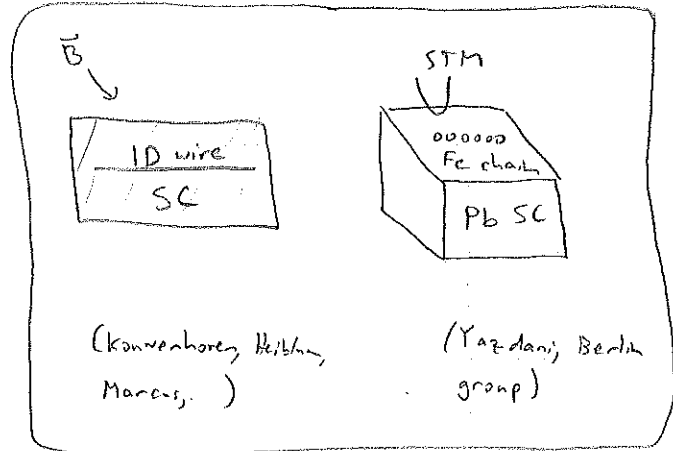 B
1D wire
SC
(Kouwenhoven, Heiblum,
Marcus, )
STM
Fe chain
Pb SC
(Yazdani, Berlin
group)